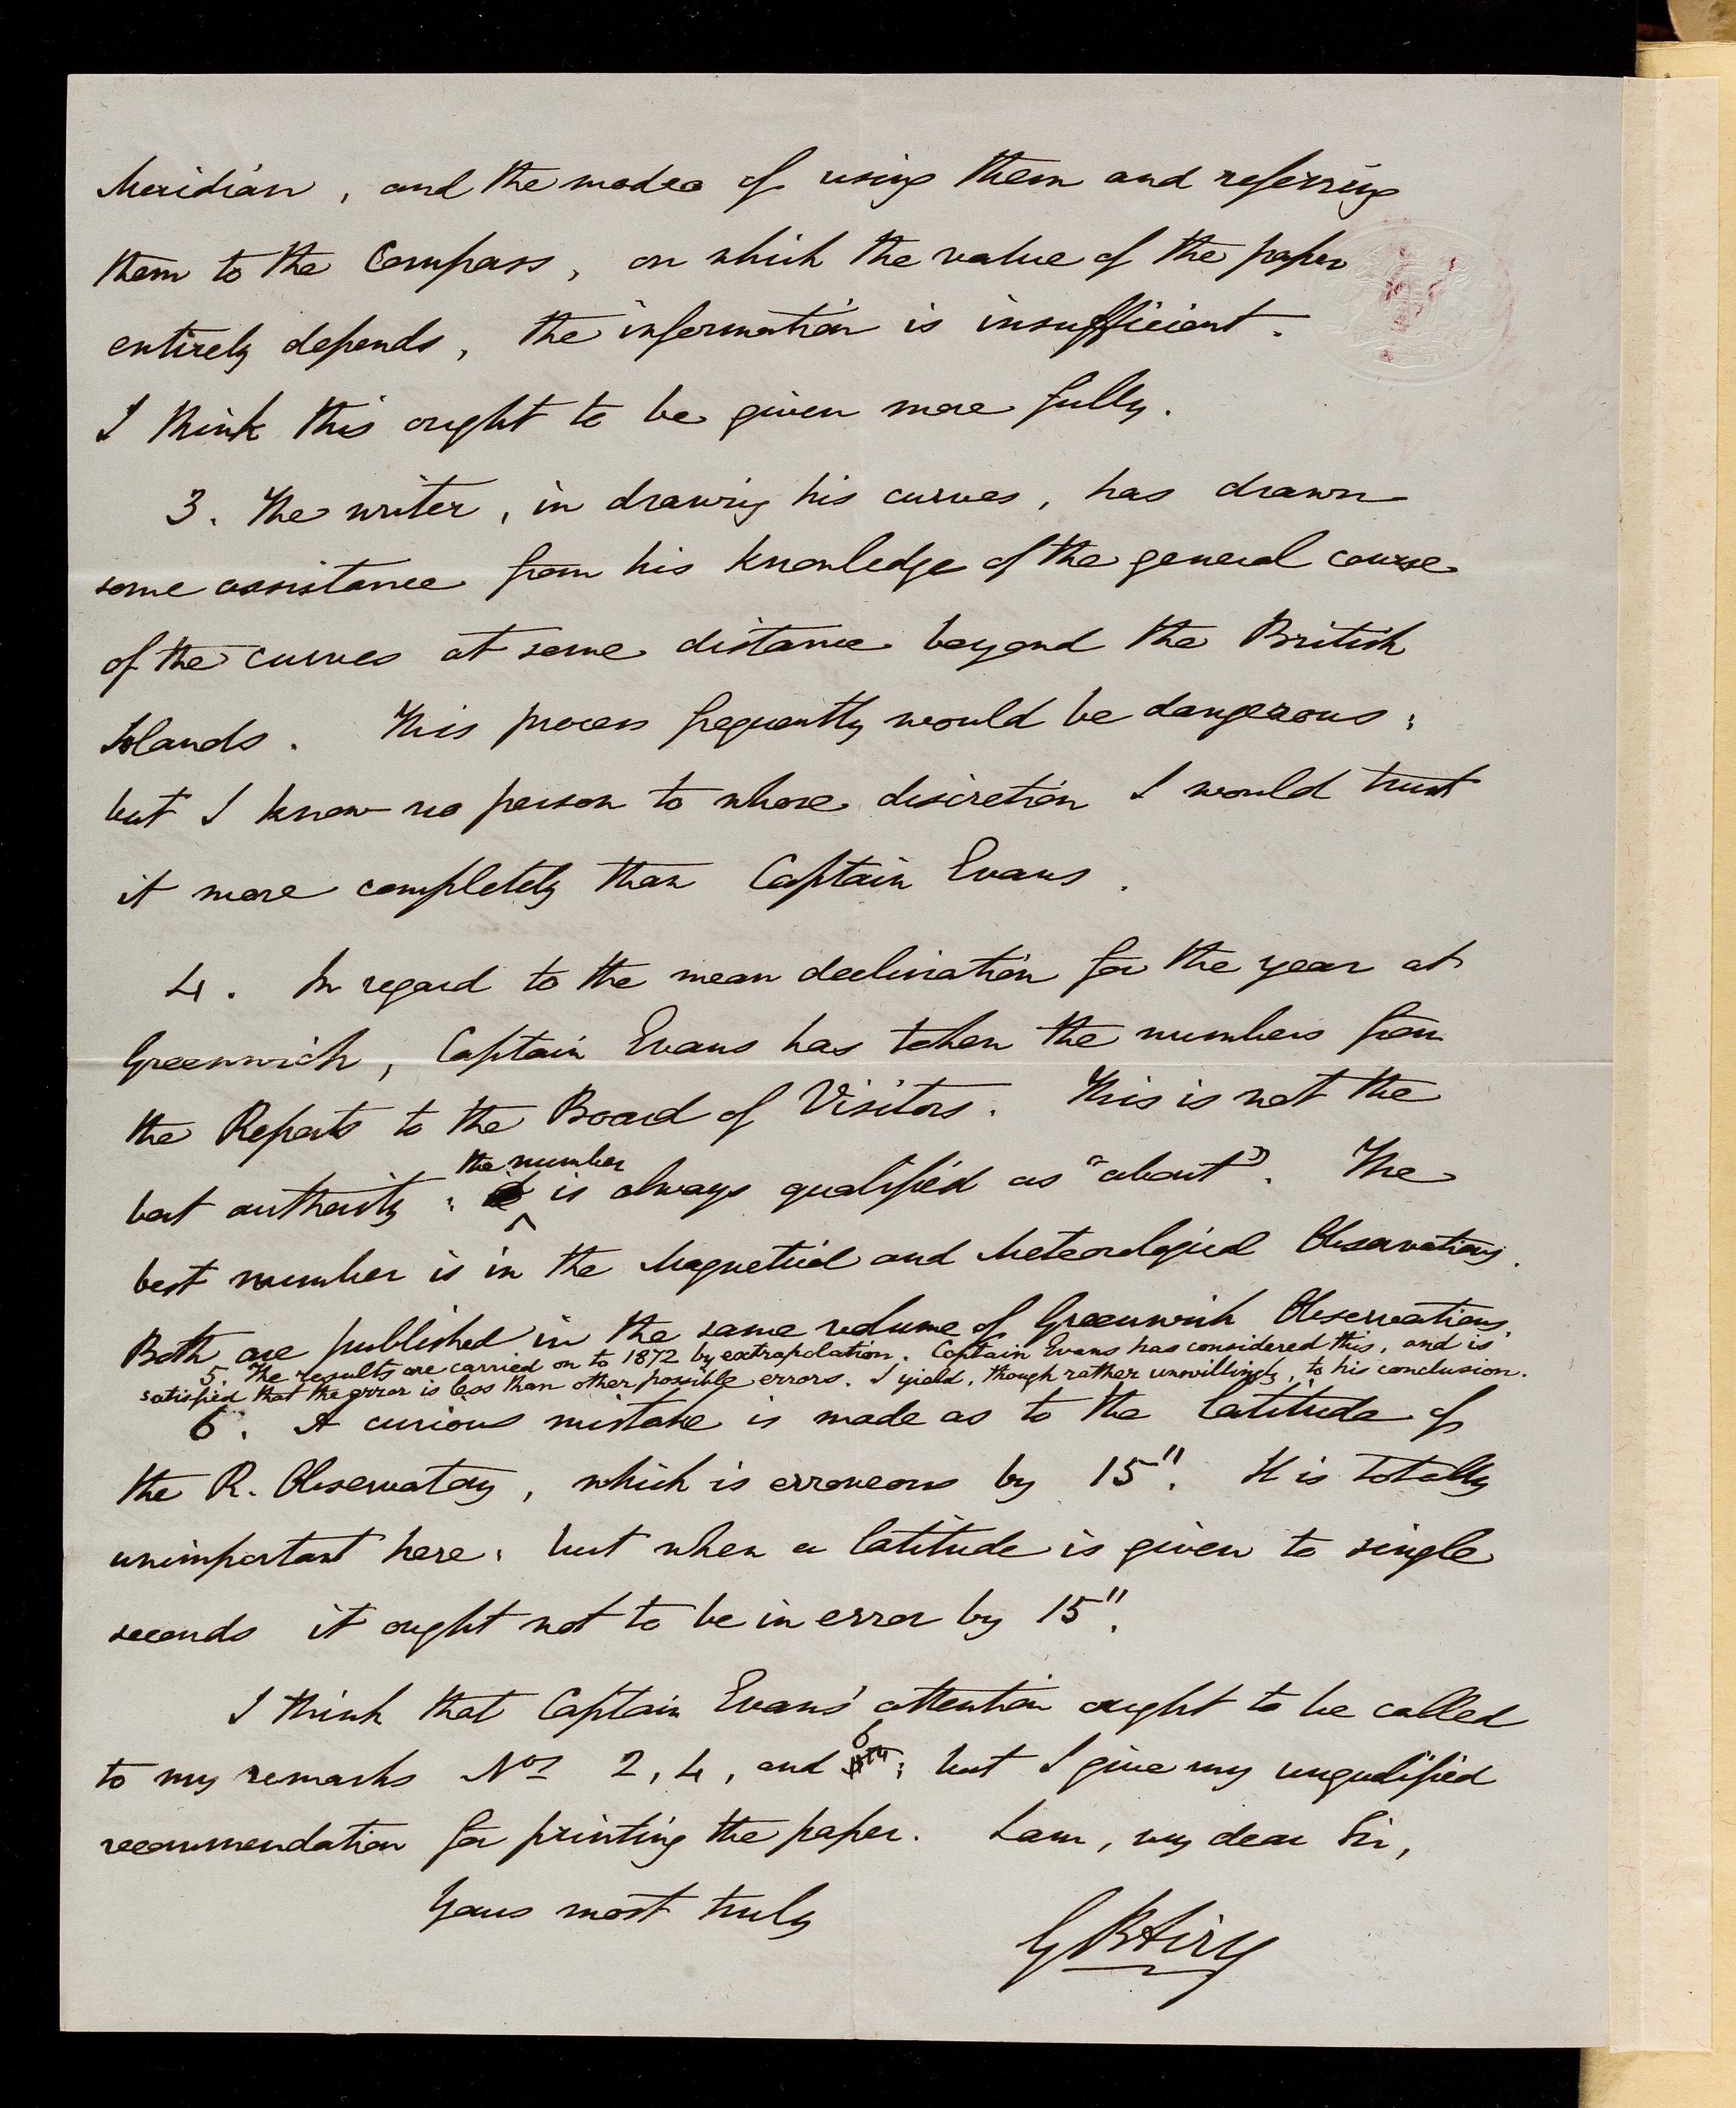 Meridian, and the modes of using them and referring
them to the Compass, on which the value of the paper
entirely depends, the information is insufficient.
I think this ought to be given more fully.
3. The writer, in drawing his curves, has drawn
some assistance from his knowledge of the general course
of the curves at some distance beyond the British
Islands. This process frequently would be dangerous;
but I know no person to whose discretion I would trust
it more completely than Captain Evans.
4. In regard to the mean declination for the year at
Greenwich, Captain Evans has taken the numbers from
the Reports to the Board of Visitors. This is not the
the number
best authority; is always qualified as "about". The
best number is in the Magnetical and Meteorological Observations.
Both are published in the same volume of Greenwich Observations.
5. The results are carried on to 1872 by extrapolation. Captain Evans has considered this, and is
satisfied that the error is less than other possible errors. I yield, though rather unwillingly, to his conclusion.
6. A curious mistake is made as to the latitude of
the R. Observatory, which is erroneous by 15". It is totally
unimportant here; but when a latitude is given to single
seconds it ought not to be in error by 15".
I think that Captain Evans' attention ought to be called
6
to my remarks Nos 2, 4, and ; but I give my unqualified
recommendation for printing the paper. I am, my dear Sir,
Yours most truly
G B Airy